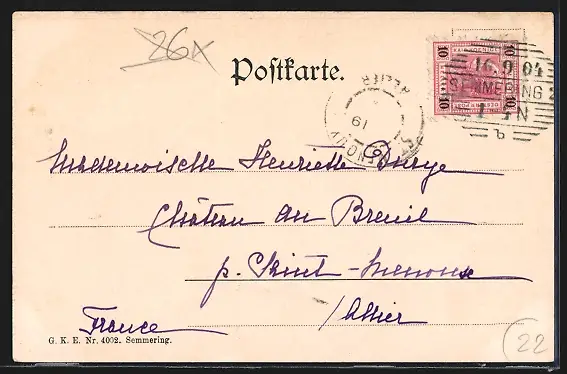 26
Postkarte.
10 10
10 10
16.9 04
SEMMERING 2
ALLIER
19
Mademoiselle Henriette
Château du Breuil
p. Saint-Menoux
Allier
France
G. K. E. Nr. 4002. Semmering.
22